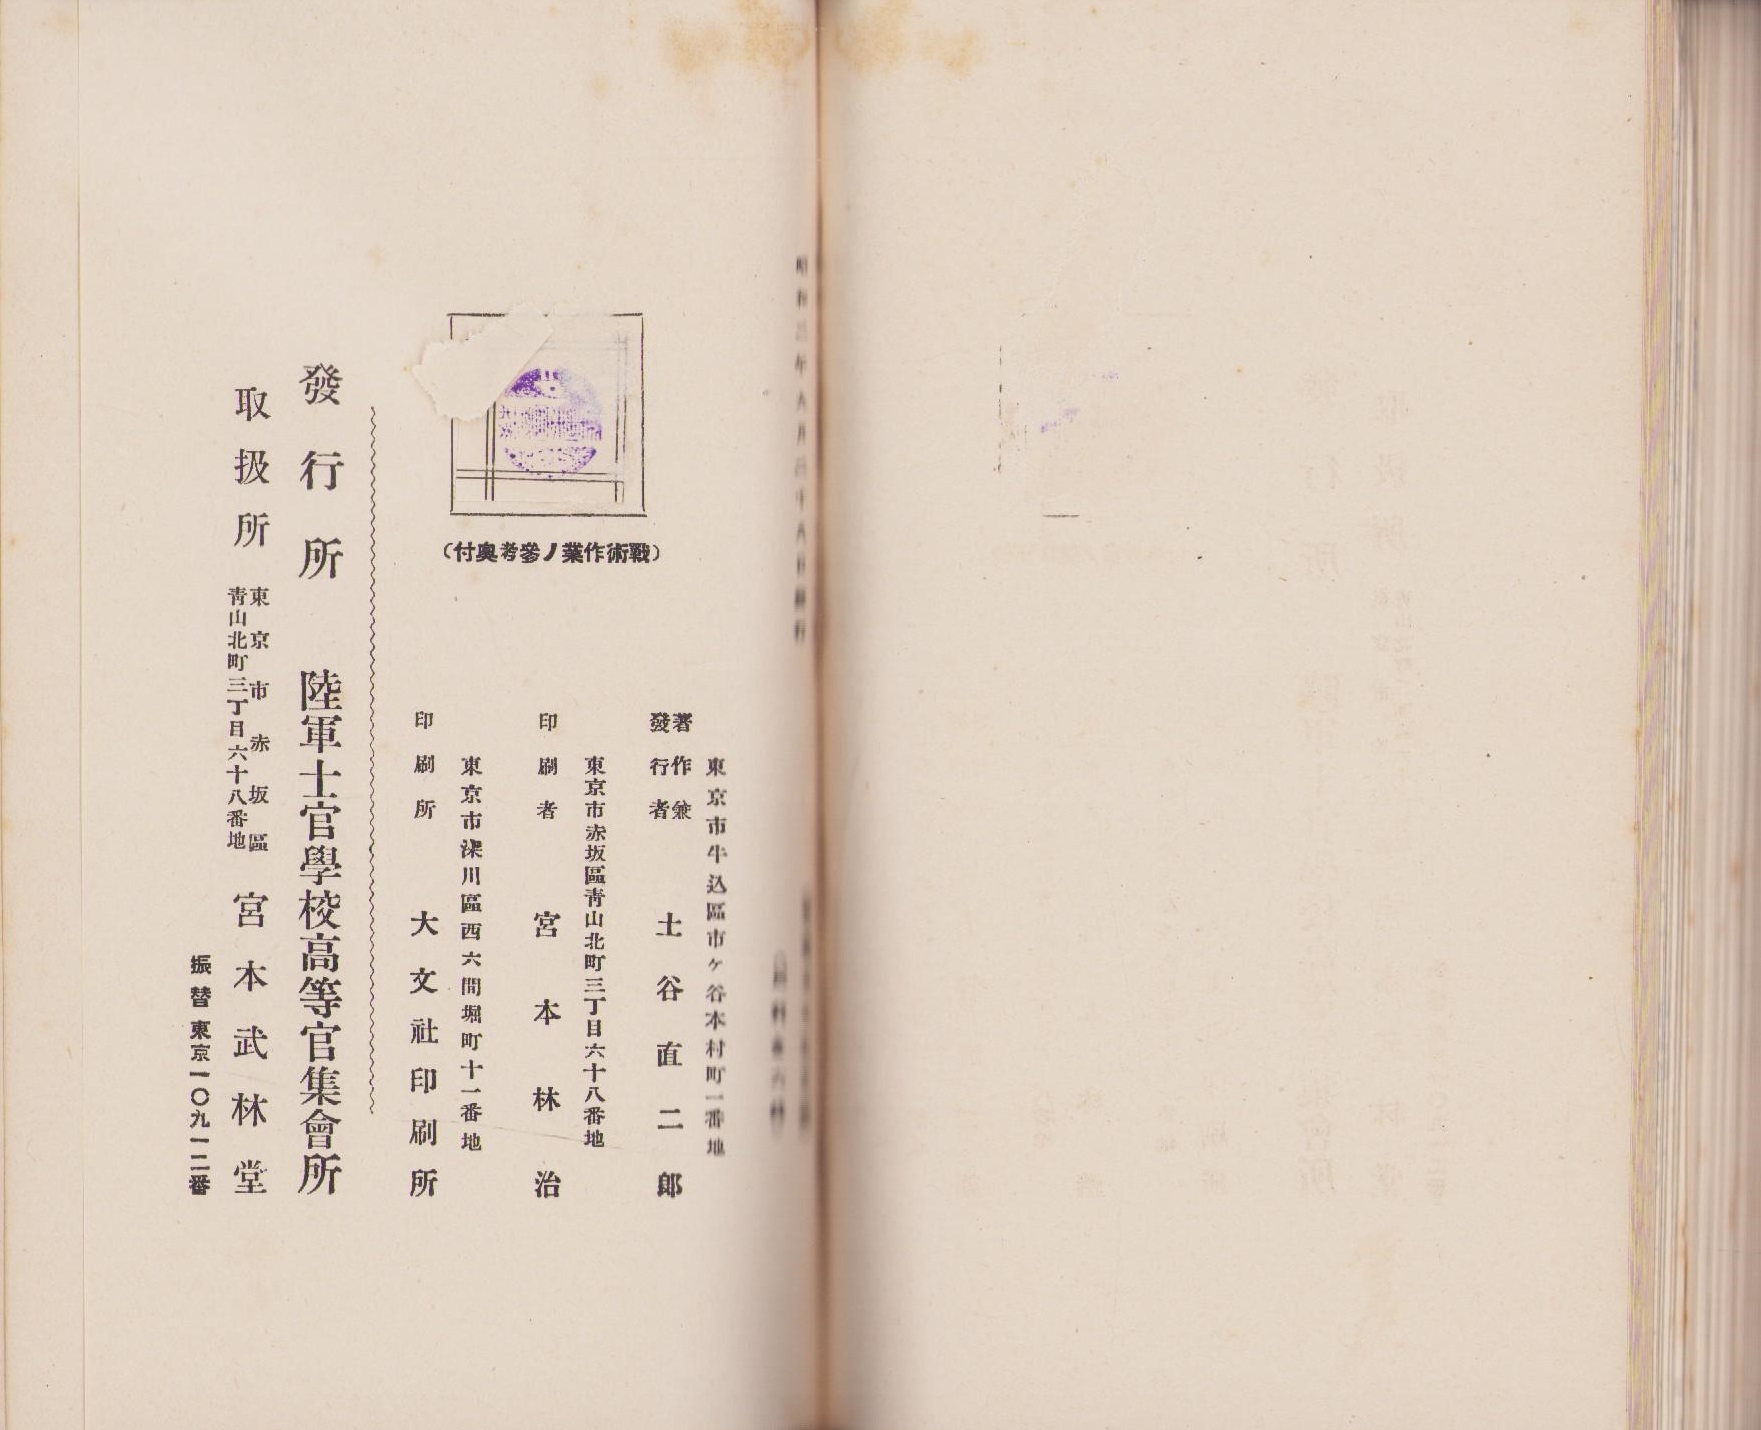 (戰術作業ノ參考奥付)
東京市牛込區市ケ谷本村町一番地
著作兼
發行者 土谷直二郎
東京市赤坂區靑山北町三丁目六十八番地
印刷者 宮本林治
東京市深川區西六間堀町十一番地
印刷所 大文社印刷所
發行所 陸軍士官學校高等官集會所
取扱所 東京市赤坂區
靑山北町三丁目六十八番地 宮本武林堂
振替東京一〇九一二番